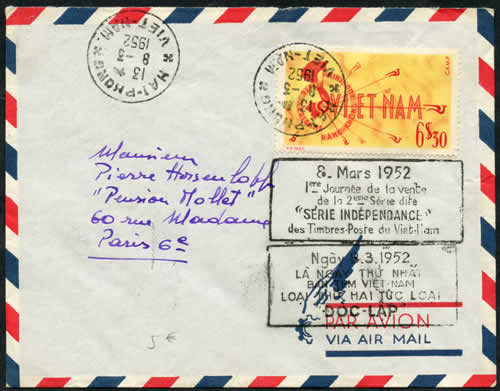 HAIPHONG
VIET-NAM
13 H
8 -3
1952
VIET NAM
6$30
Monsieur
Pierre
"Pension Mollet"
60 rue Madame
Paris 6e
8. Mars 1952
1ère Journée de la vente
de la 2ème Série dite
"SÉRIE INDÉPENDANCE"
des Timbres-Poste du Viet-Nam
Ngày 8.3.1952
LÀ NGÀY THỨ NHẤT
BÁN TEM VIỆT-NAM
LOẠI THỨ HAI TỨC LOẠI
"ĐỘC-LẬP"
PAR AVION
VIA AIR MAIL
5€